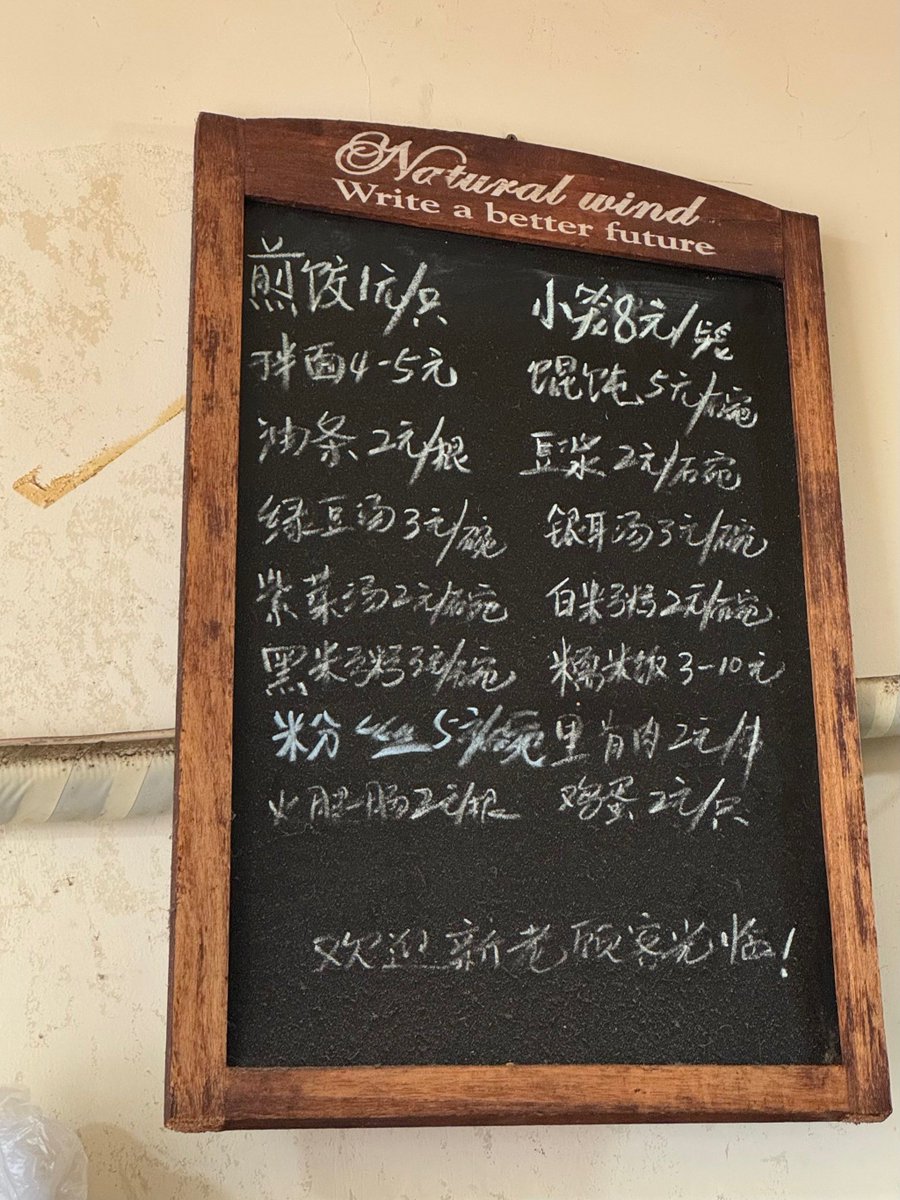 Natural wind
Write a better future
煎饺1元/只 小笼8元/笼
拌面4-5元 馄饨5元/碗
油条2元/根 豆浆2元/碗
绿豆汤3元/碗 银耳汤3元/碗
紫菜汤2元/碗 白米粥2元/碗
黑米粥3元/碗 糯米饭3-10元
米粉 5元/碗 里脊肉2元/片
火腿肠2元/根 鸡蛋2元/只
欢迎新老顾客光临!